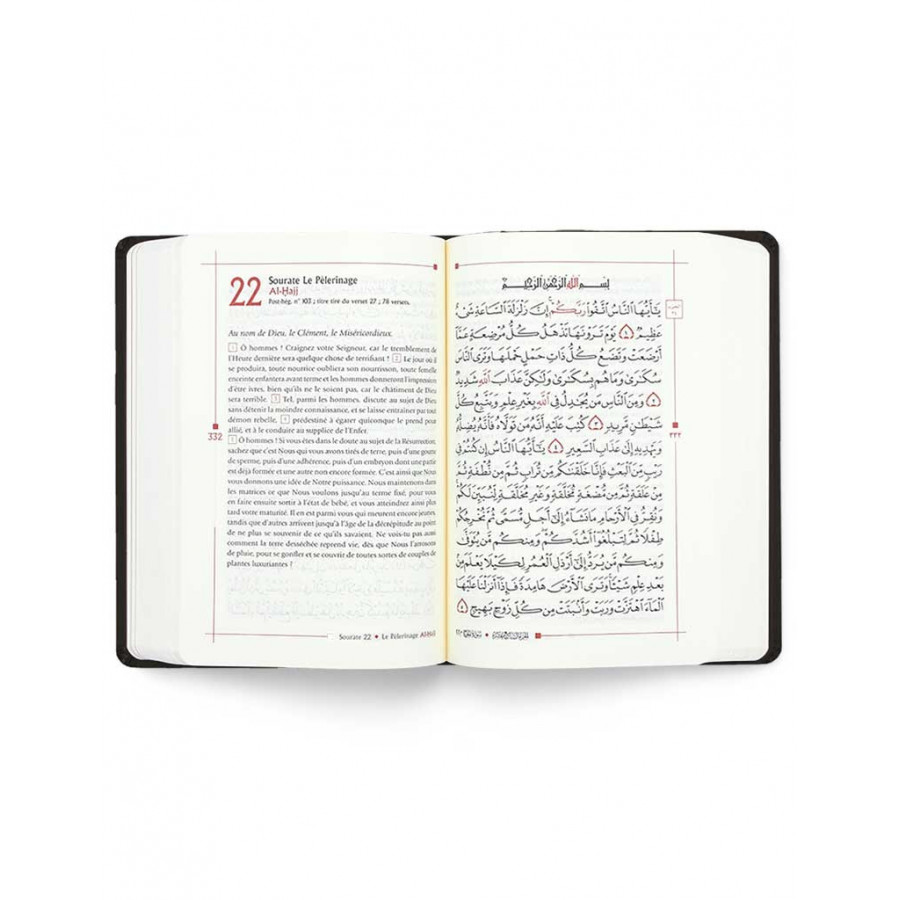 22
Sourate Le Pèlerinage
Al-Ḥajj
Post-hég. n° 103 ; titre tiré du verset 27 ; 78 versets.
Au nom de Dieu, le Clément, le Miséricordieux.
1 Ô hommes ! Craignez votre Seigneur, car le tremblement de
l'Heure dernière sera quelque chose de terrifiant ! 2 Le jour où il
se produira, toute nourrice oubliera son nourrisson, toute femelle
enceinte enfantera avant terme et les hommes donneront l'impression
d'être ivres, bien qu'ils ne le soient pas, car le châtiment de Dieu
sera terrible. 3 Tel, parmi les hommes, discute au sujet de Dieu
sans détenir la moindre connaissance, et se laisse entraîner par tout
démon rebelle, 4 prédestiné à égarer quiconque le prend pour
allié, et à le conduire au supplice de l'Enfer.
5 Ô hommes ! Si vous êtes dans le doute au sujet de la Résurrection,
sachez que c'est Nous qui vous avons tirés de terre, puis d'une goutte
de sperme, puis d'une adhérence, puis d'un embryon dont une partie
est déjà formée et une autre non encore formée. C'est ainsi que Nous
vous donnons une idée de Notre puissance. Nous maintenons dans
les matrices ce que Nous voulons jusqu'au terme fixé, pour vous
en faire ensuite sortir à l'état de bébé, et vous atteindrez ainsi plus
tard votre maturité. Il en est parmi vous qui meurent encore jeunes,
tandis que d'autres arrivent jusqu'à l'âge de la décrépitude au point
de ne plus se souvenir de ce qu'ils savaient. Ne vois-tu pas aussi
comment la terre desséchée reprend vie, dès que Nous l'arrosons
de pluie, pour se gonfler et se couvrir de toutes sortes de couples de
plantes luxuriantes ?
332
Sourate 22 • Le Pèlerinage Al-Ḥajj
بِسْمِ اللَّهِ الرَّحْمَٰنِ الرَّحِيمِ
يَٰٓأَيُّهَا النَّاسُ اتَّقُوا رَبَّكُمْ إِنَّ زَلْزَلَةَ السَّاعَةِ شَىْءٌ
عَظِيمٌ ١ يَوْمَ تَرَوْنَهَا تَذْهَلُ كُلُّ مُرْضِعَةٍ عَمَّا
أَرْضَعَتْ وَتَضَعُ كُلُّ ذَاتِ حَمْلٍ حَمْلَهَا وَتَرَى النَّاسَ
سُكَٰرَىٰ وَمَا هُم بِسُكَٰرَىٰ وَلَٰكِنَّ عَذَابَ اللَّهِ شَدِيدٌ
٢ وَمِنَ النَّاسِ مَن يُجَٰدِلُ فِى اللَّهِ بِغَيْرِ عِلْمٍ وَيَتَّبِعُ كُلَّ
شَيْطَٰنٍ مَّرِيدٍ ٣ كُتِبَ عَلَيْهِ أَنَّهُ مَن تَوَلَّاهُ فَأَنَّهُ يُضِلُّهُ
وَيَهْدِيهِ إِلَىٰ عَذَابِ السَّعِيرِ ٤ يَٰٓأَيُّهَا النَّاسُ إِن كُنتُمْ فِى
رَيْبٍ مِّنَ الْبَعْثِ فَإِنَّا خَلَقْنَٰكُم مِّن تُرَابٍ ثُمَّ مِن نُّطْفَةٍ ثُمَّ
مِنْ عَلَقَةٍ ثُمَّ مِن مُّضْغَةٍ مُّخَلَّقَةٍ وَغَيْرِ مُخَلَّقَةٍ لِّنُبَيِّنَ لَكُمْ
وَنُقِرُّ فِى الْأَرْحَامِ مَا نَشَآءُ إِلَىٰٓ أَجَلٍ مُّسَمًّى ثُمَّ نُخْرِجُكُمْ
طِفْلًا ثُمَّ لِتَبْلُغُوٓا أَشُدَّكُمْ وَمِنكُم مَّن يُتَوَفَّىٰ
وَمِنكُم مَّن يُرَدُّ إِلَىٰٓ أَرْذَلِ الْعُمُرِ لِكَيْلَا يَعْلَمَ مِن
بَعْدِ عِلْمٍ شَيْـًٔا وَتَرَى الْأَرْضَ هَامِدَةً فَإِذَآ أَنزَلْنَا عَلَيْهَا
الْمَآءَ اهْتَزَّتْ وَرَبَتْ وَأَنۢبَتَتْ مِن كُلِّ زَوْجٍۭ بَهِيجٍ ٥
٣٣٢